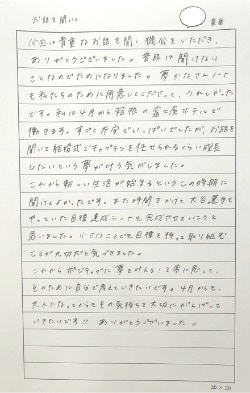 お話を聞いて
今回は貴重なお話を聞く機会をいただき、
ありがとうございました。普段は聞けない
ことなのでためになりました。夢かなえノート
も私たちのために用意してくださって、うれしかった
です。私は4月から箱根の富士屋ホテルで
働きます。すごく不安でいっぱいでしたが、お話を
聞いて結婚式でキャプテンを任せられるくらい成長
したいという夢が叶う気がしました。
これから新しい生活が始まるというこの時期に
聞けてよかったです。また時間をかけて大谷選手も
やっていた目標達成シートも完成させていこうと
思いました。小さなことでも目標を持って取り組む
ことが大切だと気づきました。
これからポジティブに夢をかなえる!と常に思って、
そのために自分で考えていきたいです。4月からも、
大人になってからもその気持ちを大切にがんばって
いきたいです!! ありがとうございました。
20×20